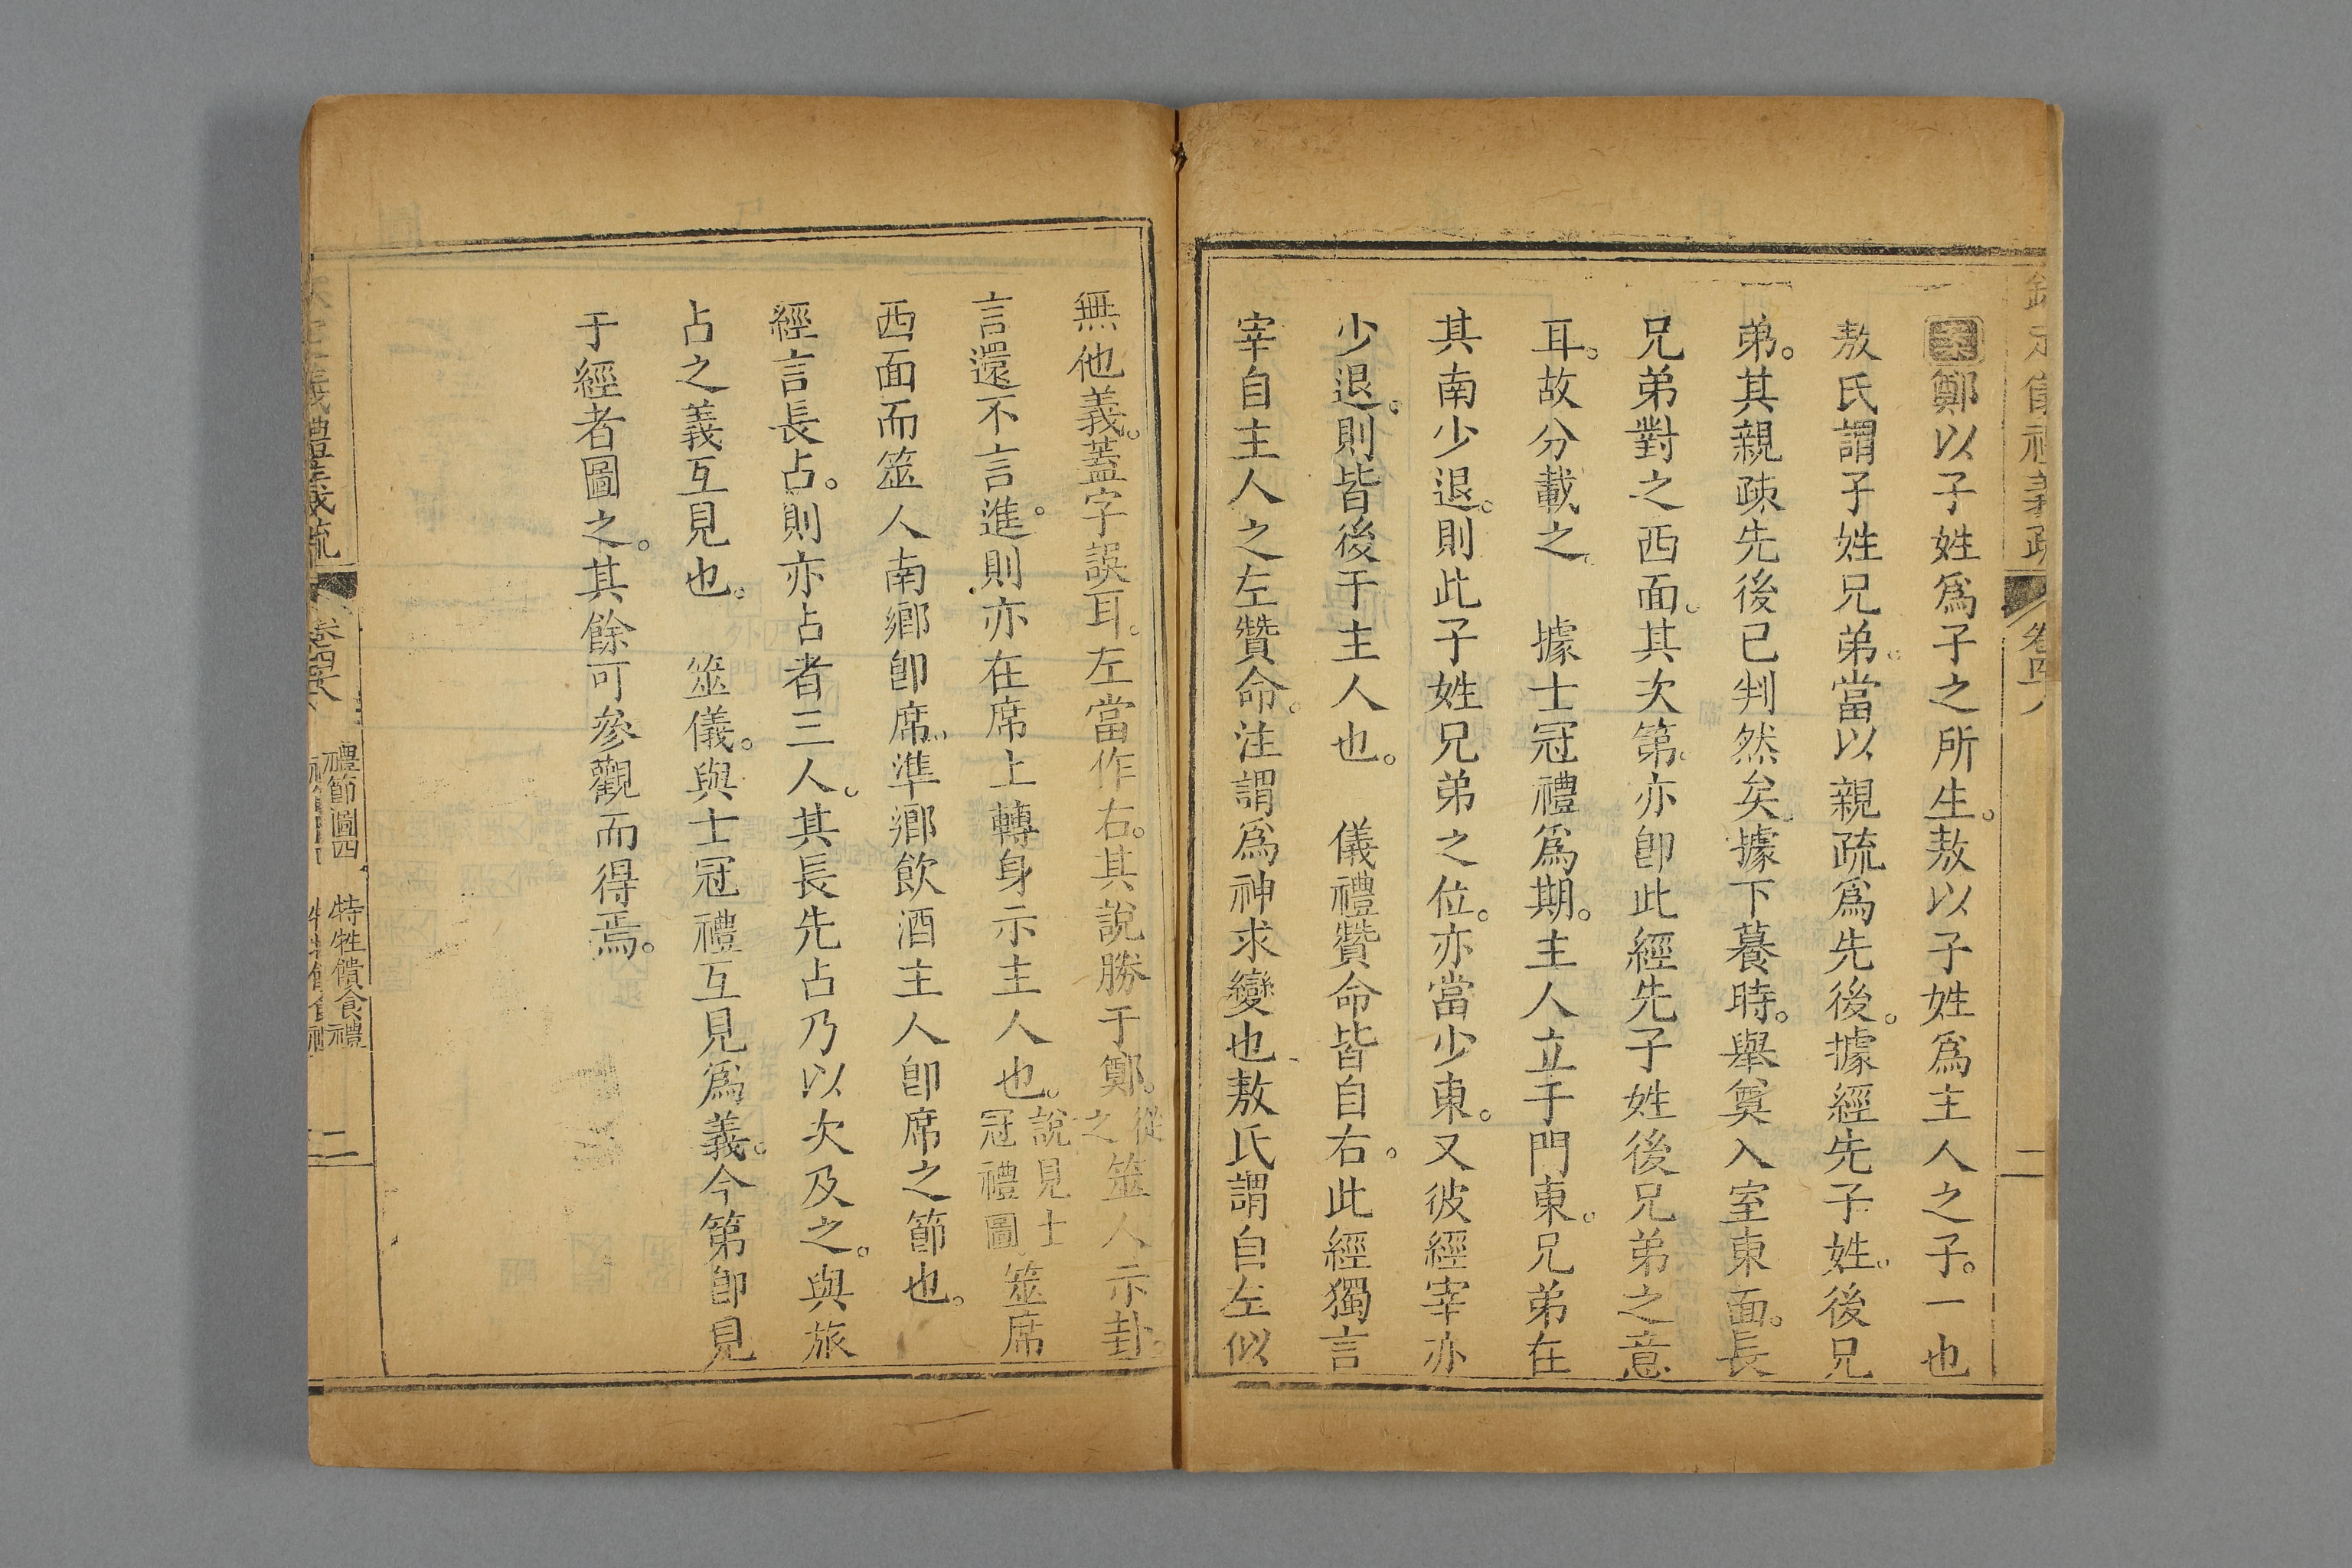 案鄭以子姓爲子之所生。敖以子姓爲主人之子。一也
敖氏謂子姓兄弟。當以親疏爲先後。據經先子姓。後兄
弟。其親疎先後已判然矣。據下養時。舉奠入室東面。長
兄弟對之西面。其次第。亦卽此經先子姓後兄弟之意
耳。故分載之。　據士冠禮爲期。主人立于門東。兄弟在
其南少退。則此子姓兄弟之位。亦當少東。又彼經宰亦
少退。則皆後于主人也。　儀禮贊命皆自右。此經獨言
宰自主人之左贊命。注謂爲神求變也敖氏謂自左似
無他義。蓋字誤耳。左當作右。其說勝于鄭。從之　筮人示卦。
言還不言進。則亦在席上轉身示主人也。說見士冠禮圖。　筮席
西面而筮人南鄉卽席。準鄉飲酒主人卽席之節也。
經言長占。則亦占者三人。其長先占乃以次及之。與旅
占之義互見也。　筮儀。與士冠禮互見爲義。今第卽見
于經者圖之。其餘可參觀而得焉。
義禮義疏　卷四十八　禮節圖四　特牲饋食禮　二